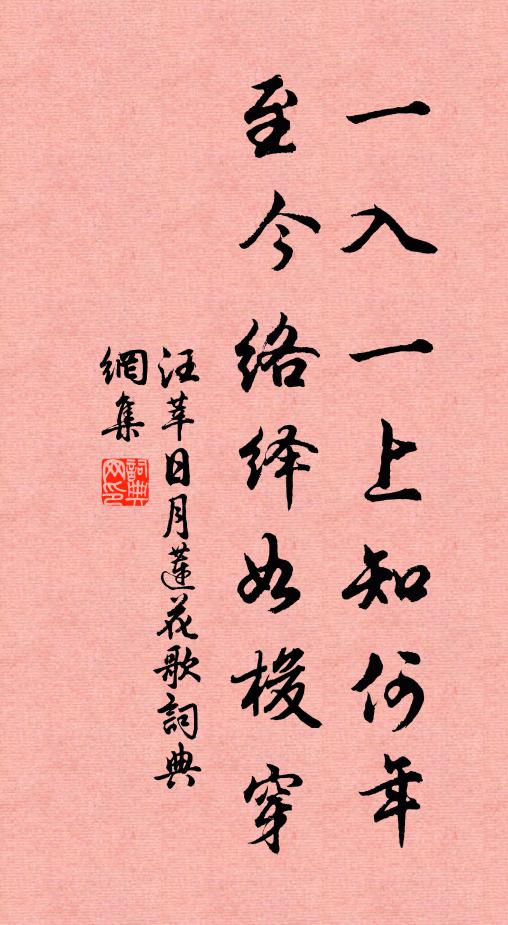 一入一上知何年
至今络绎如梭穿
汪莘日月莲花歌詞典
網集
詞典网印